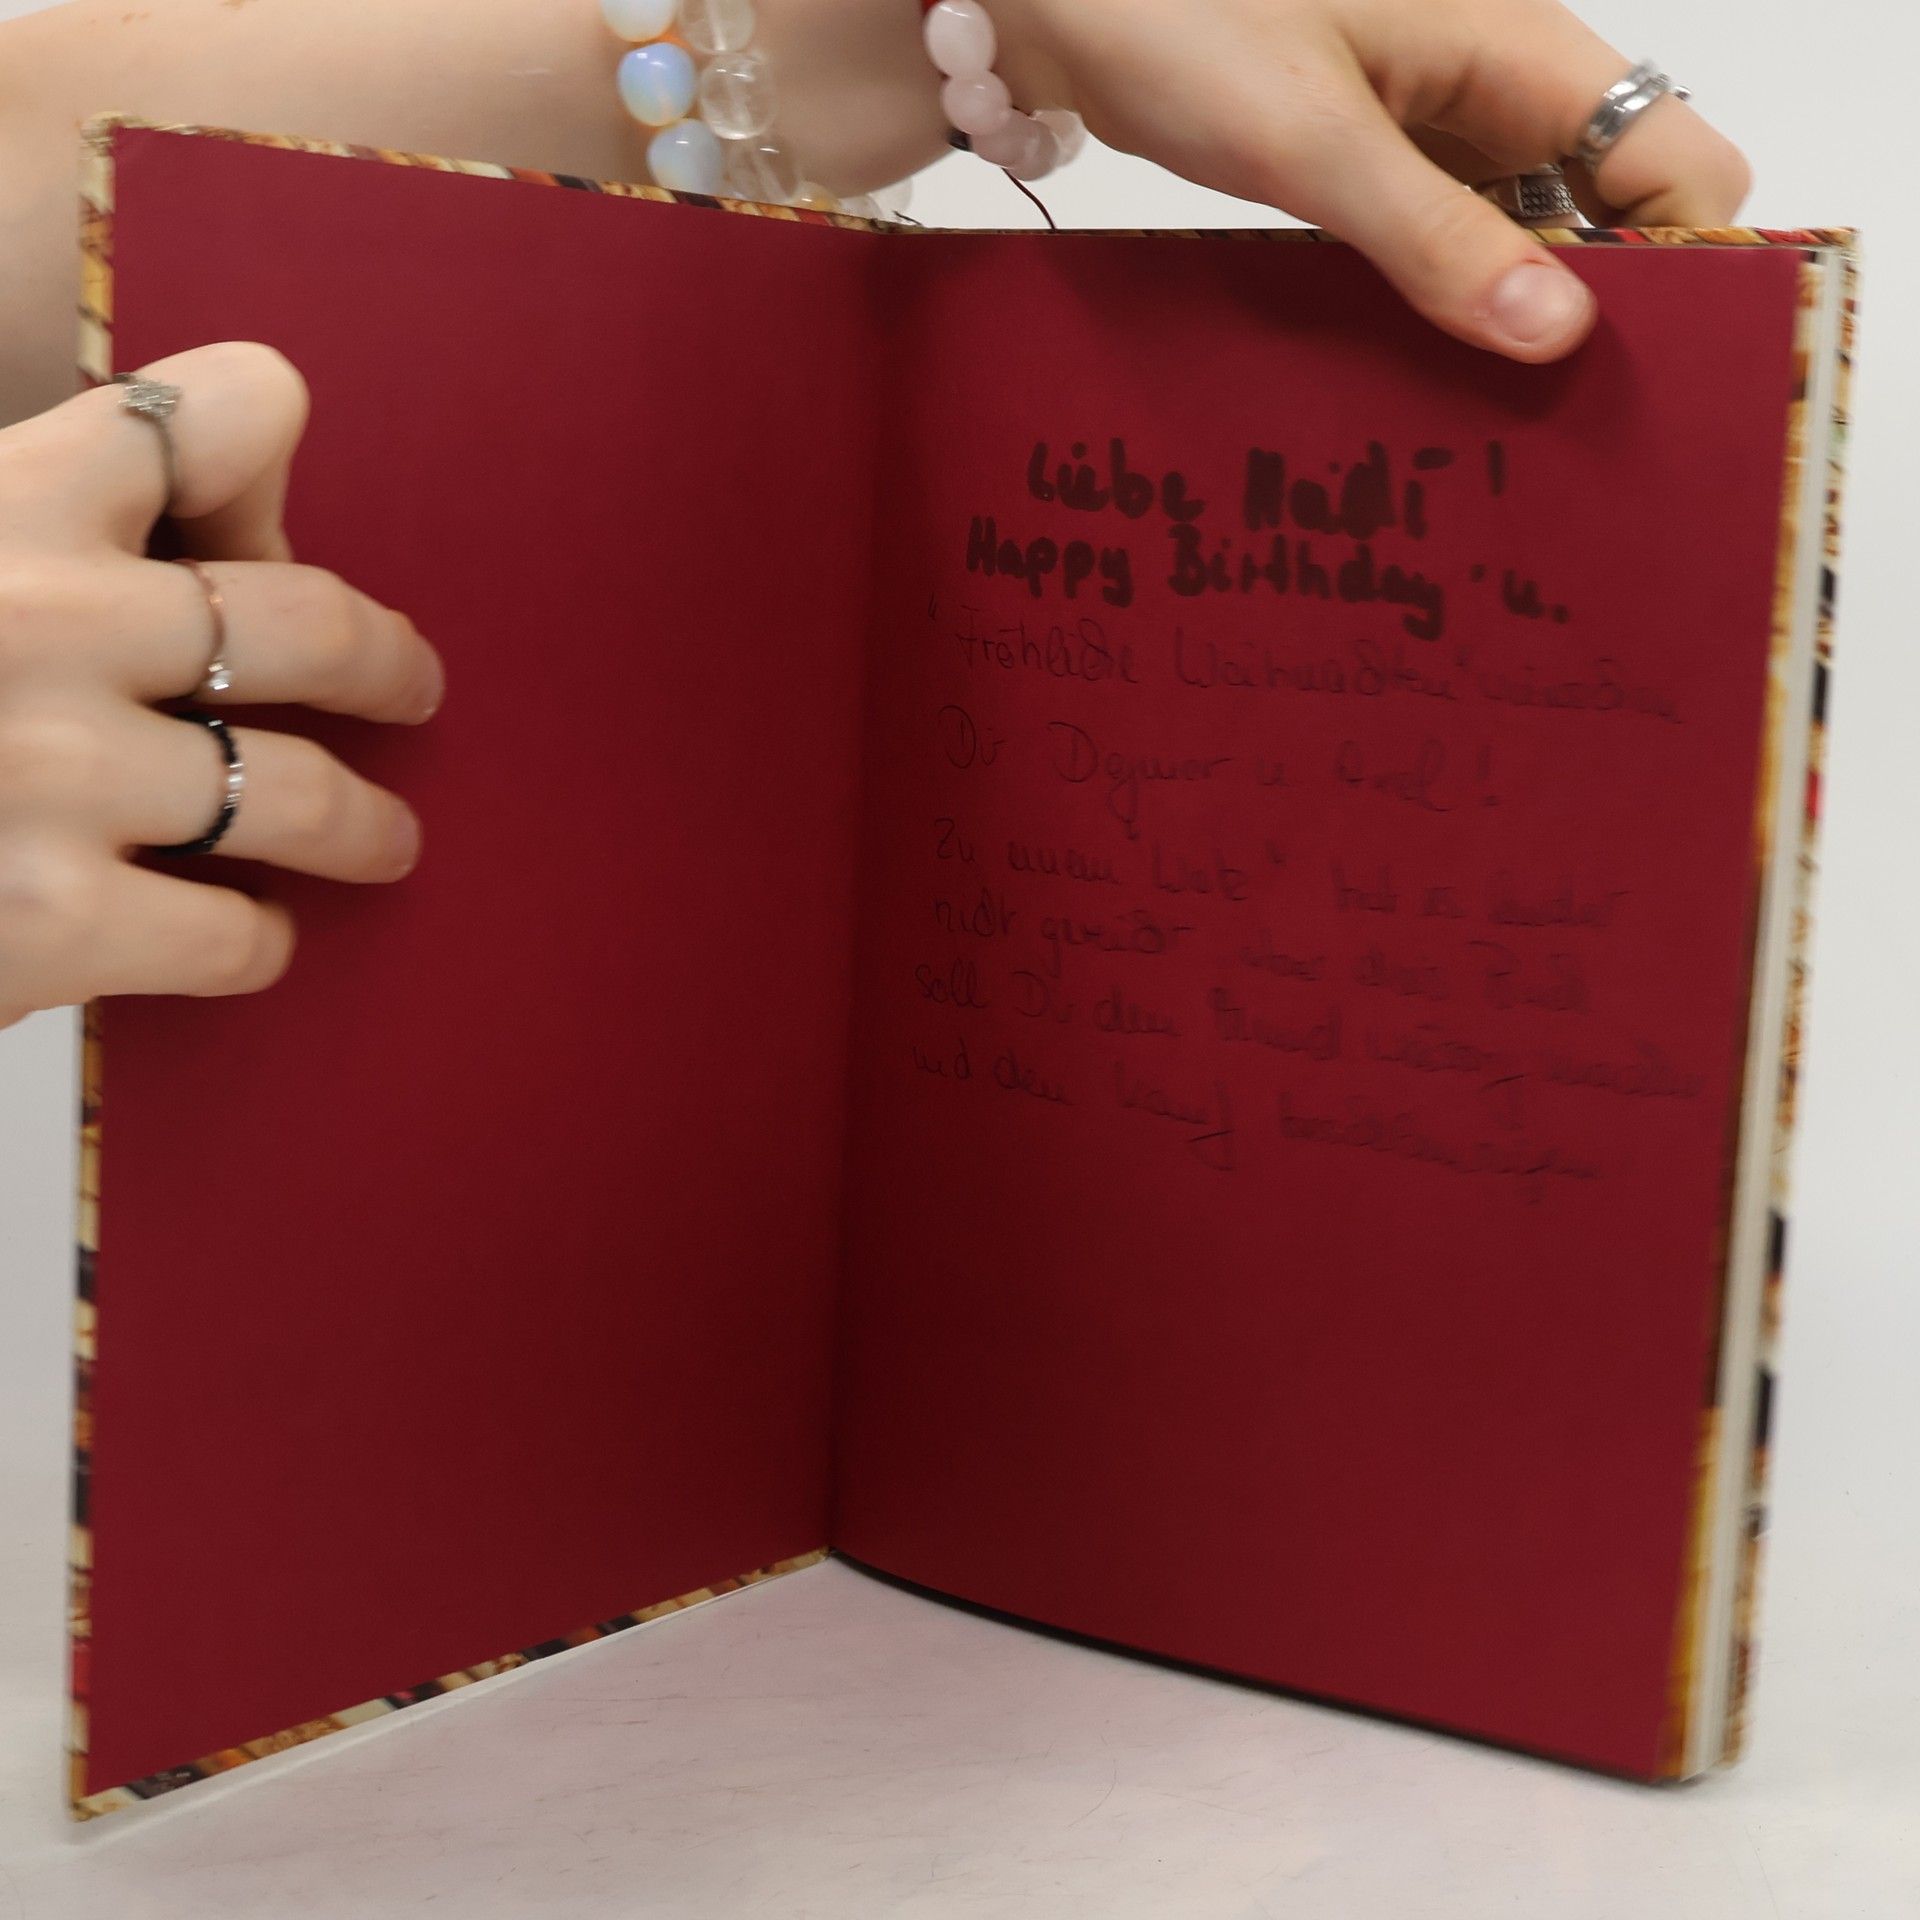 Liebe Heidi!
Happy Birthday u.
"Fröhliche Weihnachten" wünschen
Dir Dagmar u. Axel!
Zu einem hat es leider
nicht gereicht, aber dies Buch
soll Dir den Mund wässrig machen
und den Kauf beschleunigen